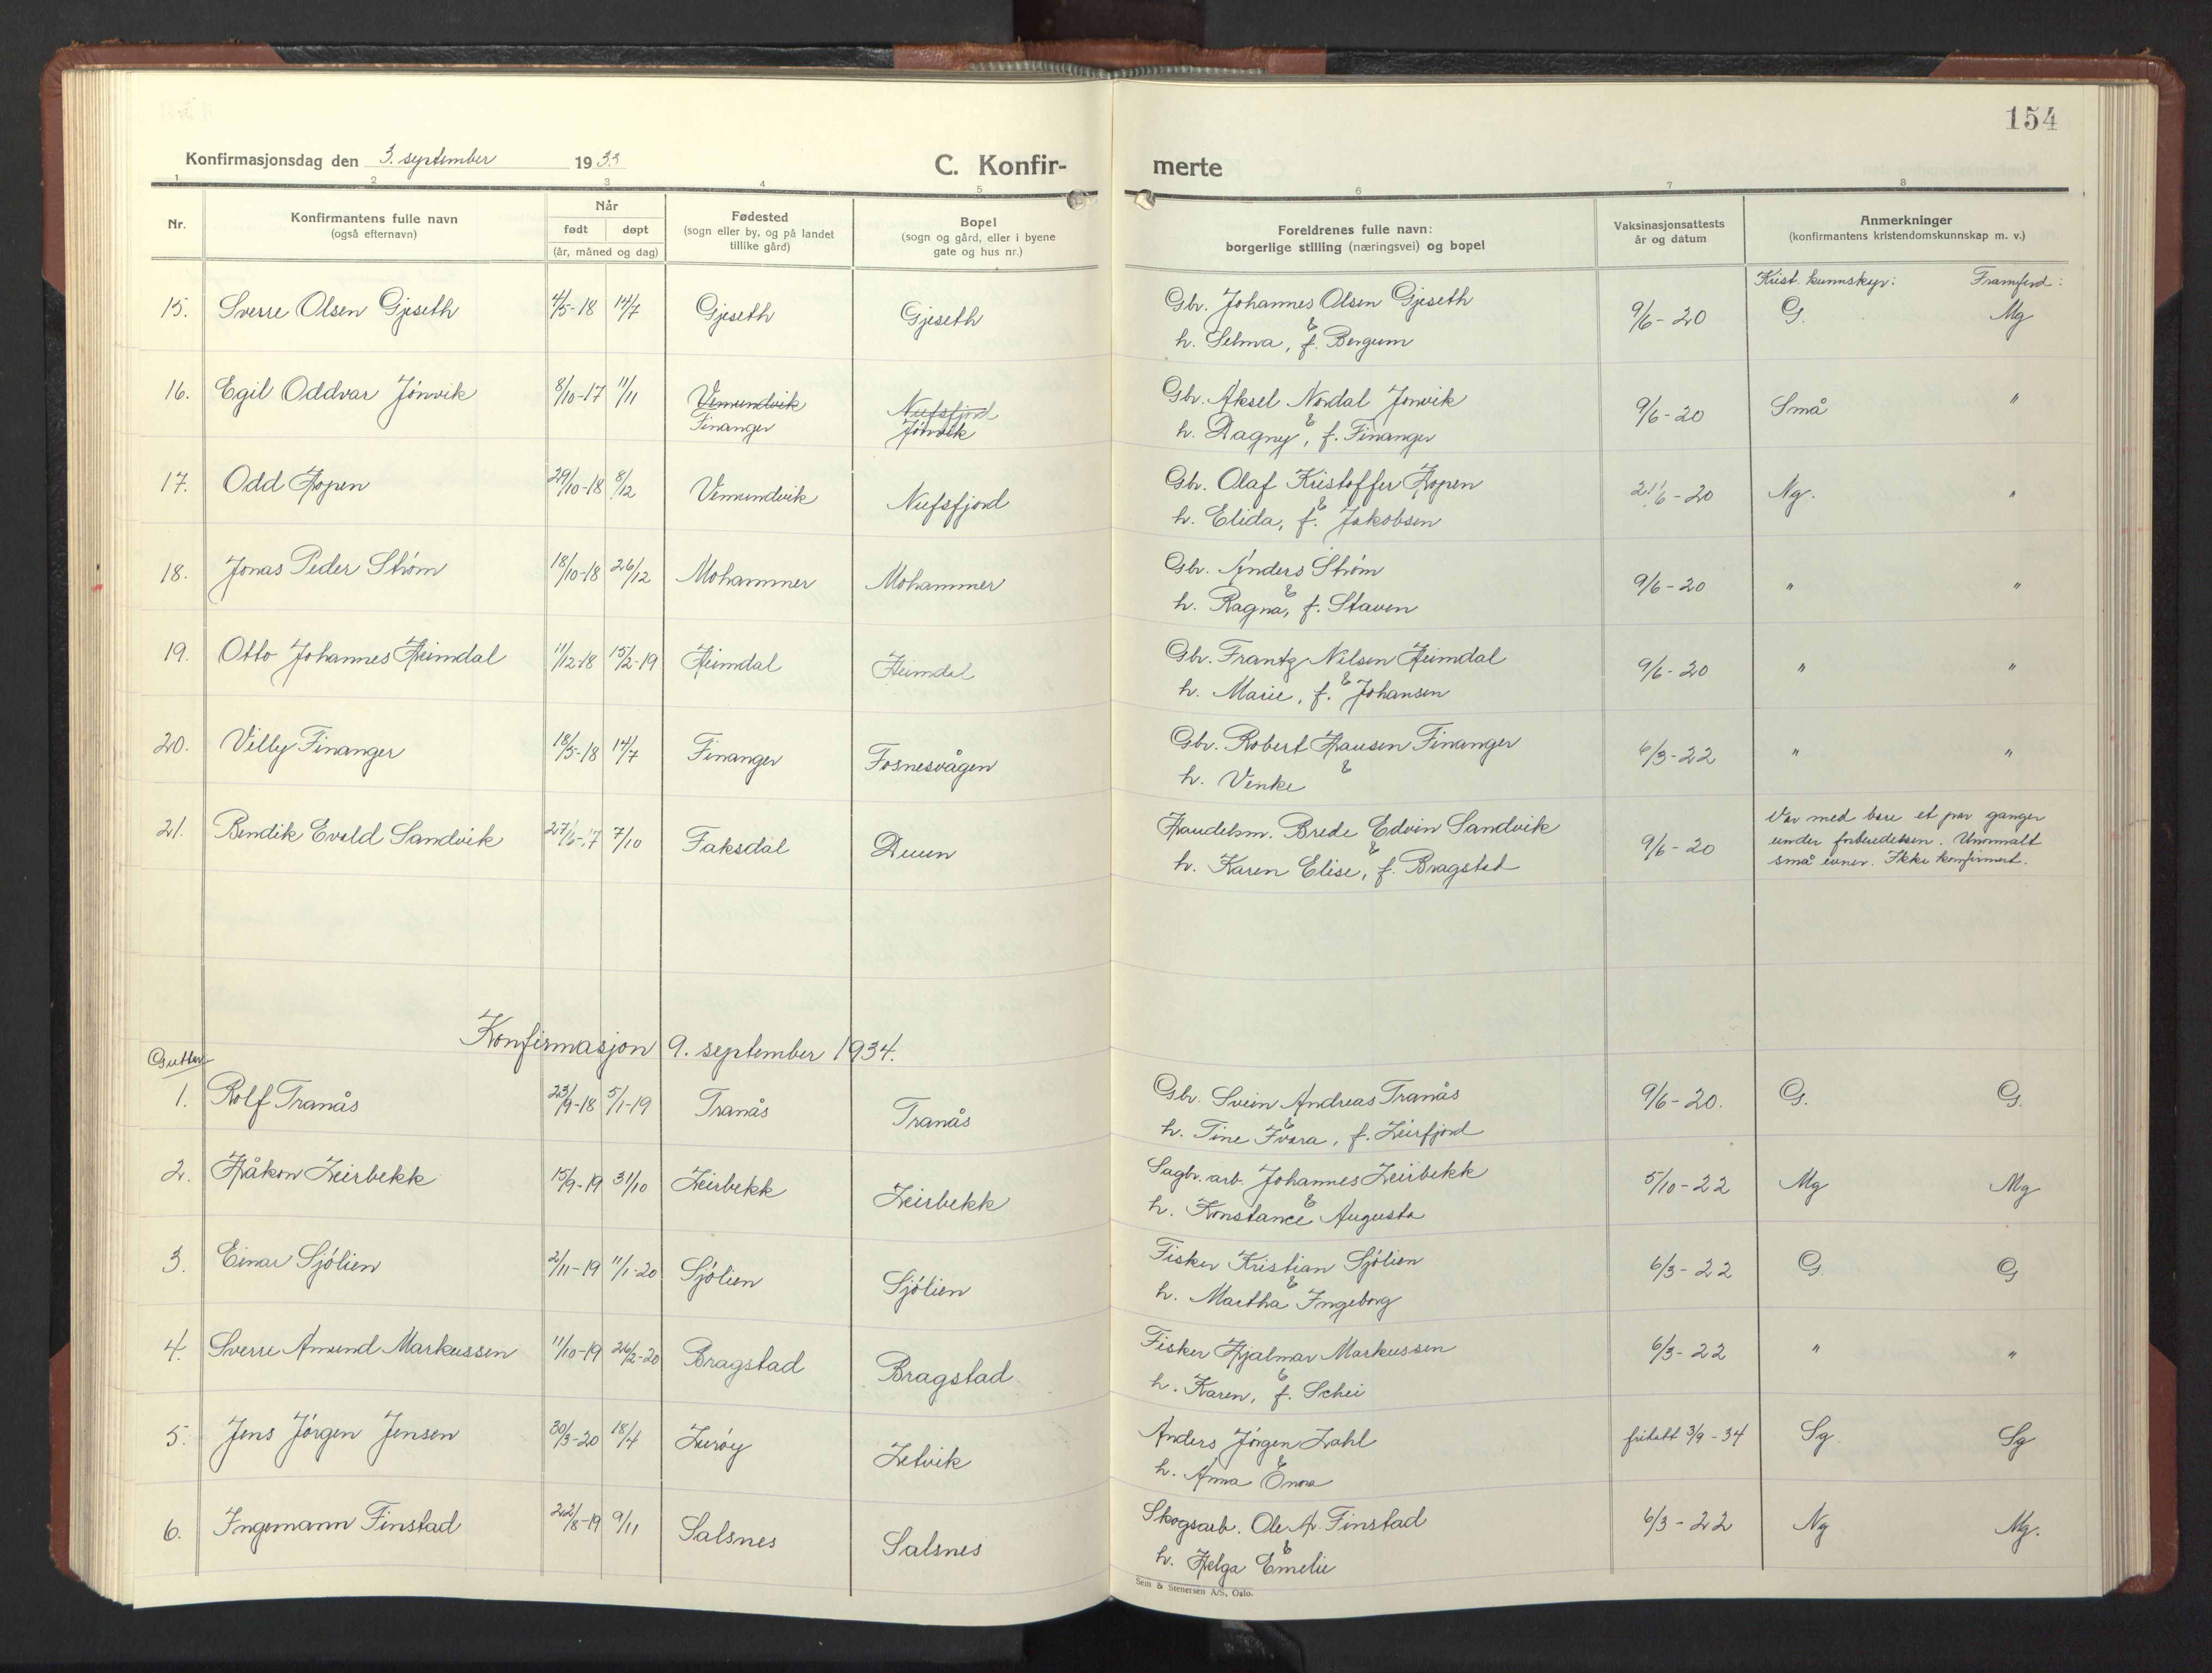 154
Konfirmasjonsdag den 3. september 1933 C. Konfir- merte
1 2 3 4 5 6 7 8
Nr. Konfirmantens fulle navn (også efternavn) Når født døpt (år, måned og dag) Fødested (sogn eller by, og på landet tillike gård) Bopel (sogn og gård, eller i byene gate og hus nr.) Foreldrenes fulle navn: borgerlige stilling (næringsvei) og bopel Vaksinasjonsattests år og datum Anmerkninger (konfirmantens kristendomskunnskap m. v.)
Krist. kunnskap: Framferd:
15. Sverre Olsen Gjeseth 4/5-18 14/7 Gjeseth Gjeseth Gbr. Johannes Olsen Gjeseth 9/6-20 G. Mg
& h. Selma, f. Bergum
16. Egil Oddvar Jönvik 8/10-17 11/11 Vemundvik Nufsfjord Gbr. Aksel Nordal Jönvik 9/6-20 Små "
Finanger Jönvik & h. Dagny, f. Finanger
17. Odd Hopen 29/10-18 8/12 Vemundvik Nufsfjord Gbr. Olaf Kristoffer Hopen 21/6-20 Ng. "
& h. Elida, f. Jakobsen
18. Jonas Peder Ström 18/10-18 26/12 Mohammer Mohammer Gbr. Anders Ström 9/6-20 " "
& h. Ragna, f. Staven
19. Otto Johannes Heimdal 11/12-18 15/2-19 Heimdal Heimdal Gbr. Frantz Nilsen Heimdal 9/6-20 " "
& h. Marie, f. Johansen
20. Villy Finanger 18/5-18 14/7 Finanger Fosnesvågen Gbr. Robert Hansen Finanger 6/3-22 " "
& h. Venke
21. Bendik Evald Sandvik 27/6-17 7/10 Faksdal Duun Handelsm. Brede Edvin Sandvik 9/6-20 Var med bare et par ganger
& h. Karen Elise, f. Bragstad under forberedelsen. Unormalt
små evner. Ikke konfirmert.
Konfirmasjon 9. september 1934.
Gutter
1. Rolf Tranås 23/9-18 5/1-19 Tranås Tranås Gbr. Svein Andreas Tranås 9/6-20. G. G.
& h. Tine Ivara, f. Leirfjord
2. Håkon Leirbekk 15/9-19 31/10 Leirbekk Leirbekk Sagbr. arb. Johannes Leirbekk 5/10-22 Mg Mg
& h. Konstance Augusta
3. Einar Sjölien 2/11-19 11/1-20 Sjölien Sjölien Fisker Kristian Sjölien 6/3-22 G. G
& h. Martha Ingeborg
4. Sverre Amund Markussen 11/10-19 26/2-20 Bragstad Bragstad Fisker Hjalmar Markussen 6/3-22 " "
& h. Karen, f. Schei
5. Jens Jörgen Jensen 30/3-20 18/4 Luröy Letvik Anders Jörgen Dahl fritatt 3/9-34 Sg. Sg
& h. Anna
6. Ingemann Finstad 22/8-19 9/11 Salsnes Salsnes Skogsarb. Ole A. Finstad 6/3-22 Ng Mg.
& h. Helga Emelie
Sem & Stenersen A/S, Oslo.